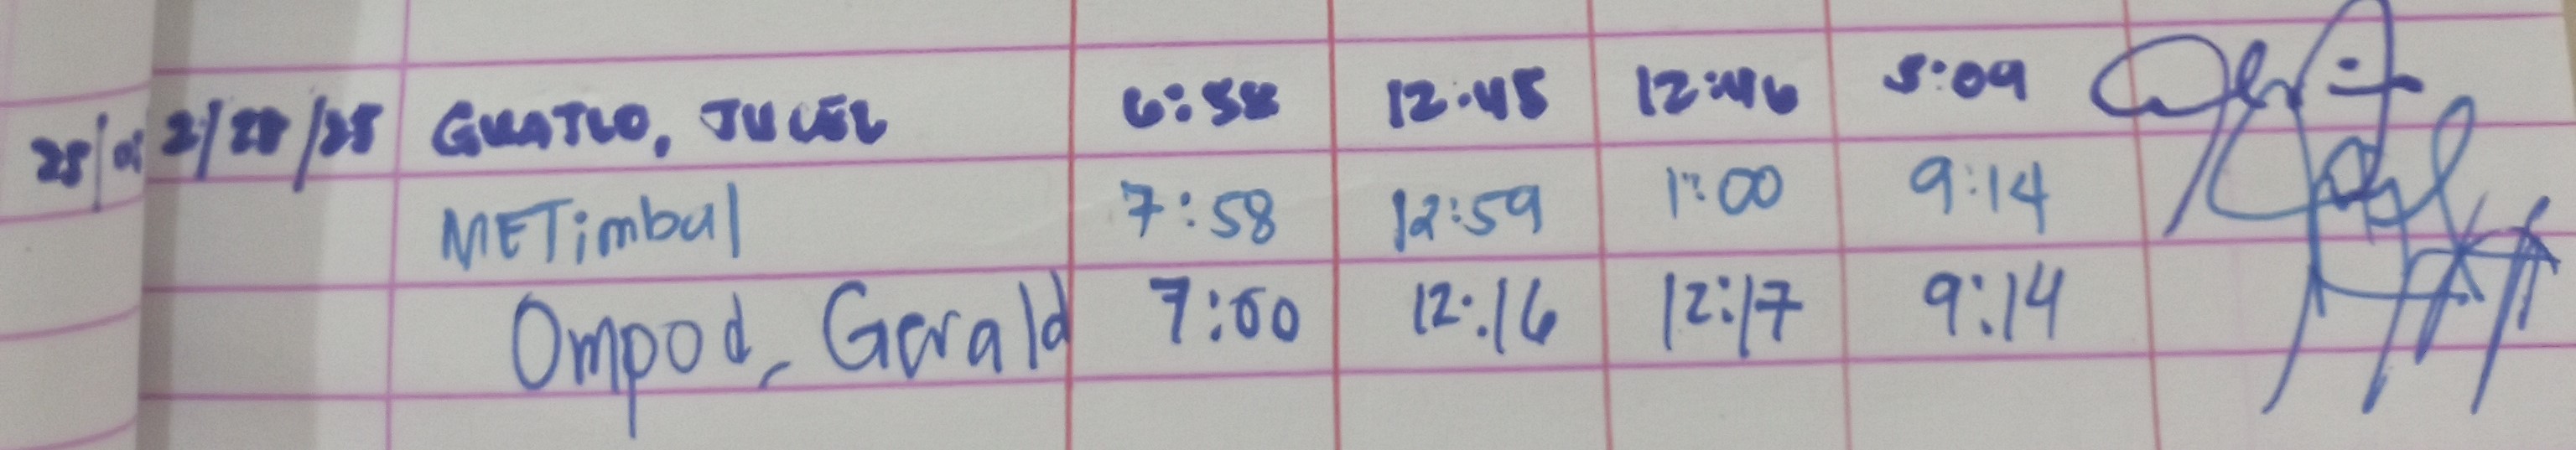 2/28/25 GUATLO, JUCEL 6:58 12:45 12:46 5:09
METimbal 7:58 12:59 1:00 9:14
Ompod, Gerald 7:00 12:16 12:17 9:14